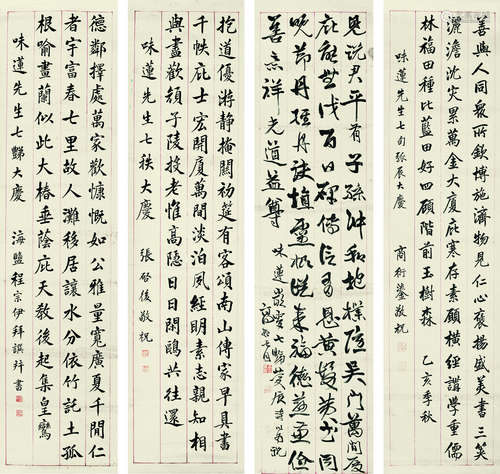 善與人同所欽博施濟眾集褒揚書三笑
灑沈灾累萬金大廈庇寒存素願橫經講學重儒
林福田種比藍田好四顧階前玉樹森 乙亥季秋
味蓮先生七旬弧辰大慶 商衍鎏敬祝
見說君平有子孫沖和地樸隱吳門萬間廣
庇能世代百口碑傳信有恩黃髮同
晚節丹
善亦祥光道益尊 味蓮
抱道優游靜掩關初筵有客頌南山傳家早具書
千帙庇士宏開廈萬間淡泊夙經明素志親知相
與盡歡顏子陵投老惟高隱日日閒鷗共往還
味蓮先生七秩大慶 張啓後敬祝
德鄰擇處萬家歡慷慨如公雅量寬廣夏千閒仁
者宇富春七里故人灘移居讓水分依竹託土孤
根喻畫蘭似此大椿垂蔭庇天教後起集皇鸞
味蓮先生七豑大慶 海鹽程宗伊拜譔并書